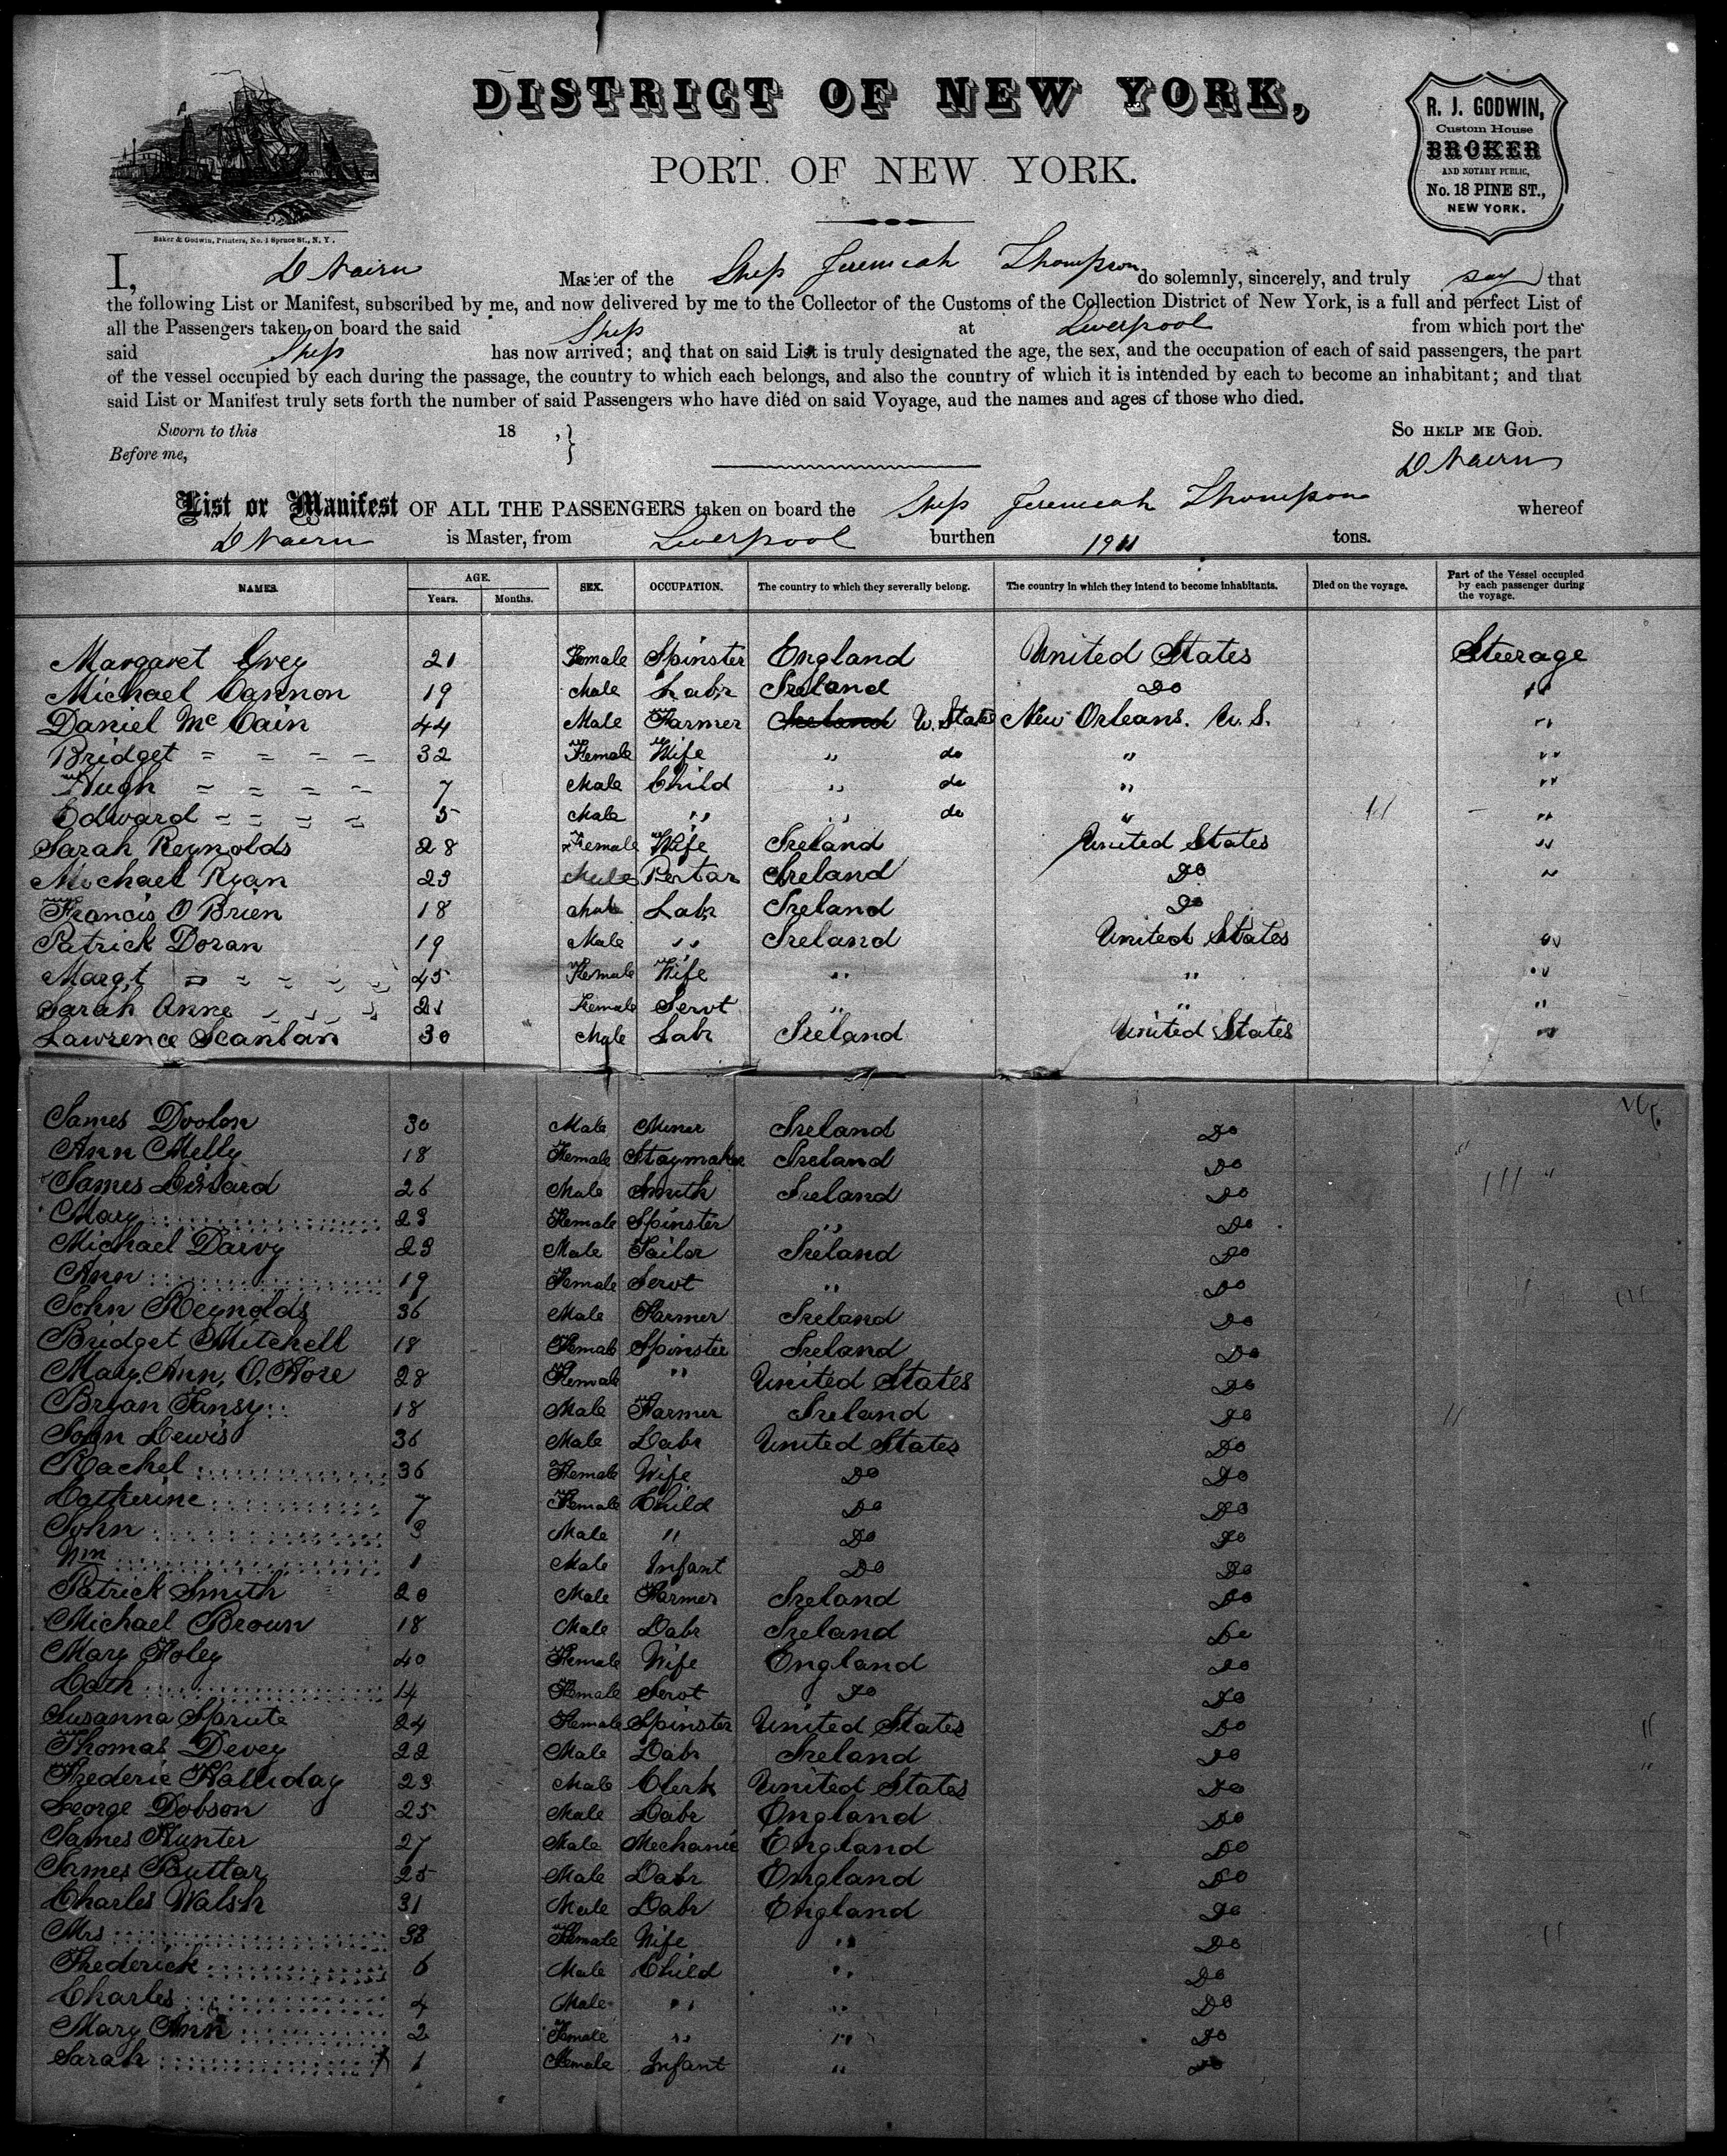 DISTRICT OF NEW YORK,
PORT OF NEW YORK.
Baker & Godwin, Printers, No. 1 Spruce St., N. Y.
R. J. GODWIN,
Custom House
BROKER
AND NOTARY PUBLIC,
No. 18 PINE ST.,
NEW YORK.
I, D Nairn Master of the Ship Jeremiah Thompson do solemnly, sincerely, and truly say that
the following List or Manifest, subscribed by me, and now delivered by me to the Collector of the Customs of the Collection District of New York, is a full and perfect List of
all the Passengers taken on board the said Ship at Liverpool from which port the
said Ship has now arrived; and that on said List is truly designated the age, the sex, and the occupation of each of said passengers, the part
of the vessel occupied by each during the passage, the country to which each belongs, and also the country of which it is intended by each to become an inhabitant; and that
said List or Manifest truly sets forth the number of said Passengers who have died on said Voyage, and the names and ages of those who died.
Sworn to this 18 , } So help me God.
Before me, D Nairn
List or Manifest OF ALL THE PASSENGERS taken on board the Ship Jeremiah Thompson whereof
D Nairn is Master, from Liverpool burthen 1911 tons.
NAMES. AGE. Years. Months. SEX. OCCUPATION. The country to which they severally belong. The country in which they intend to become inhabitants. Died on the voyage. Part of the Vessel occupied by each passenger during the voyage.
Margaret Grey 21 Female Spinster England United States Steerage
Michael Cannon 19 Male Labr Ireland Do "
Daniel Mc Cain 44 Male Farmer Ireland U. States New Orleans. U.S. "
Bridget = = = = 32 Female Wife " do " "
Hugh = = = = 7 Male Child " do " "
Edward = = = = 5 Male " " do " "
Sarah Reynolds 28 Female Wife Ireland United States "
Michael Ryan 23 Male Ireland Do "
Francis O Brien 18 Male Labr Ireland Do
Patrick Doran 19 Male " Ireland United States "
Margt = = = = 45 Female Wife " " "
Sarah Anne 21 Female Servt " " "
Lawrence Scanlan 30 Male Labr Ireland United States "
James Doolon 30 Male Miner Ireland Do
Ann Melly 18 Female Staymaker Ireland Do "
James 26 Male Smith Ireland Do "
Mary 23 Female Spinster " Do
Michael Darvy 23 Male Tailor Ireland Do
Ann 19 Female Servt " Do
John Reynolds 36 Male Farmer Ireland Do
Bridget Mitchell 18 Female Spinster Ireland Do
Mary Ann O. Hore 28 Female " United States Do
Bryan Fansy 18 Male Farmer Ireland Do
John Lewis 36 Male Labr United States Do
Rachel 36 Female Wife Do Do
Catherine 7 Female Child Do Do
John 3 Male " Do Do
Wm 1 Male Infant Do Do
Patrick Smith 20 Male Farmer Ireland Do
Michael Broun 18 Male Labr Ireland Do
Mary Foley 40 Female Wife England Do
Cath 14 Female Servt Do Do
Susanna Sprute 24 Female Spinster United States Do
Thomas Devey 22 Male Labr Ireland Do
Frederic Halliday 23 Male Clerk United States Do
George Dobson 25 Male Labr England Do
James Hunter 27 Male Mechanic England Do
James Buttar 25 Male Labr England Do
Charles Walsh 31 Male Labr England Do
Mrs 33 Female Wife " Do
Frederick 6 Male Child " Do
Charles 4 Male " " Do
Mary Ann 2 Female " " Do
Sarah 1 Female Infant " Do